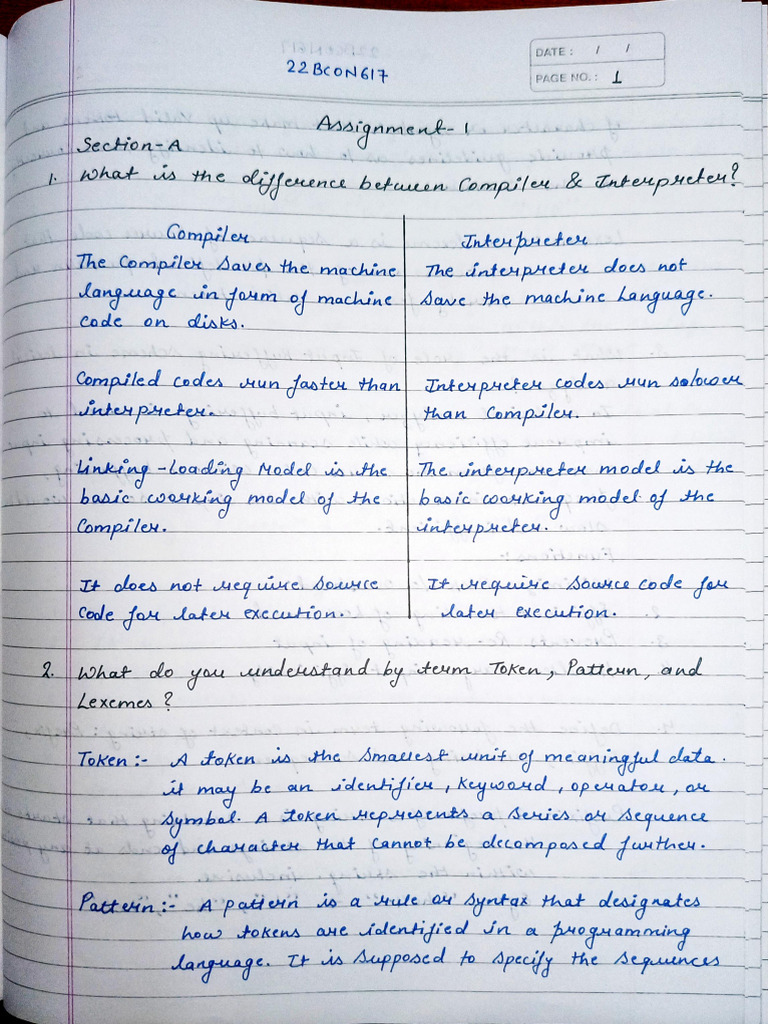 22BCON617
DATE : / /
PAGE NO. : 1
Assignment-1
Section-A
1. What is the difference between Compiler & Interpreter?
Compiler
The Compiler saves the machine
language in form of machine
code on disks.
Compiled codes run faster than
interpreter.
Linking-Loading Model is the
basic working model of the
Compiler.
It does not require source
code for later execution.
Interpreter
The interpreter does not
save the machine language.
Interpreter codes run solower
than Compiler.
The interpreter model is the
basic working model of the
interpreter.
It require source code for
later execution.
2. What do you understand by term Token, Pattern, and
Lexemes?
Token :- A token is the smallest unit of meaningful data.
it may be an identifier, keyword, operator, or
symbol. A token represents a series or sequence
of character that cannot be decomposed further.
Pattern :- A pattern is a rule or syntax that designates
how tokens are identified in a programming
language. It is supposed to specify the sequences